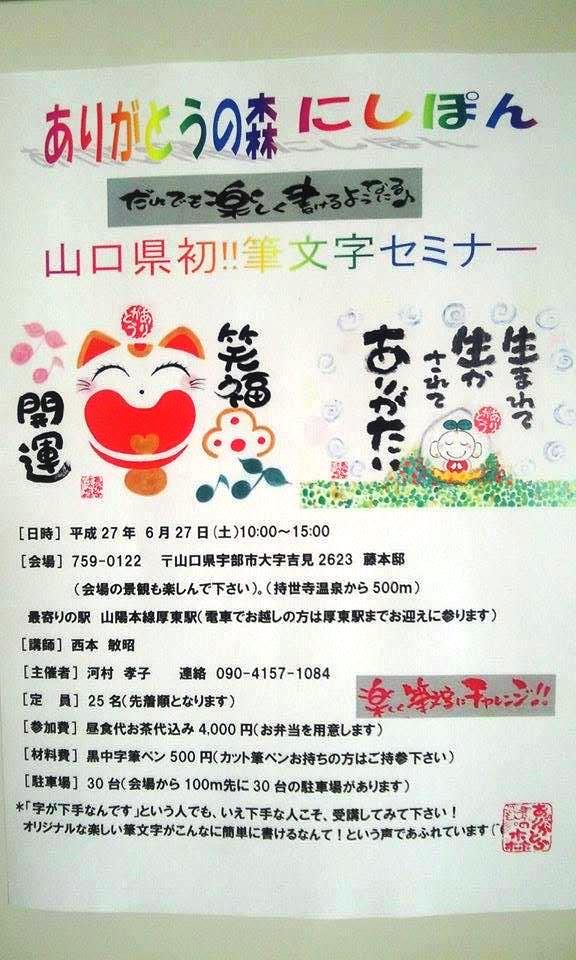 ありがとうの森 にしぽん
だれでも楽しく書けるようになる♪
山口県初!!筆文字セミナー
ありがとう
笑福
開運
生まれて
生か
されて
ありがたい
ありがとう
[日時] 平成27年 6月27日(土)10:00～15:00
[会場] 759-0122 〒山口県宇部市大字吉見2623 藤本邸
(会場の景観も楽しんで下さい)。(持世寺温泉から500m)
最寄りの駅 山陽本線厚東駅(電車でお越しの方は厚東駅までお迎えに参ります)
[講師] 西本 敏昭
[主催者] 河村 孝子 連絡 090-4157-1084
楽しく筆文字にチャレンジ!!
[定 員] 25名(先着順となります)
[参加費] 昼食代お茶代込み4,000円(お弁当を用意します)
[材料費] 黒中字筆ペン500円(カット筆ペンお持ちの方はご持参下さい)
[駐車場] 30台(会場から100m先に30台の駐車場があります)
*「字が下手なんです」という人でも、いえ下手な人こそ、受講してみて下さい！
オリジナルな楽しい筆文字がこんなに簡単に書けるなんて！という声であふれています(^
ありがとうの森